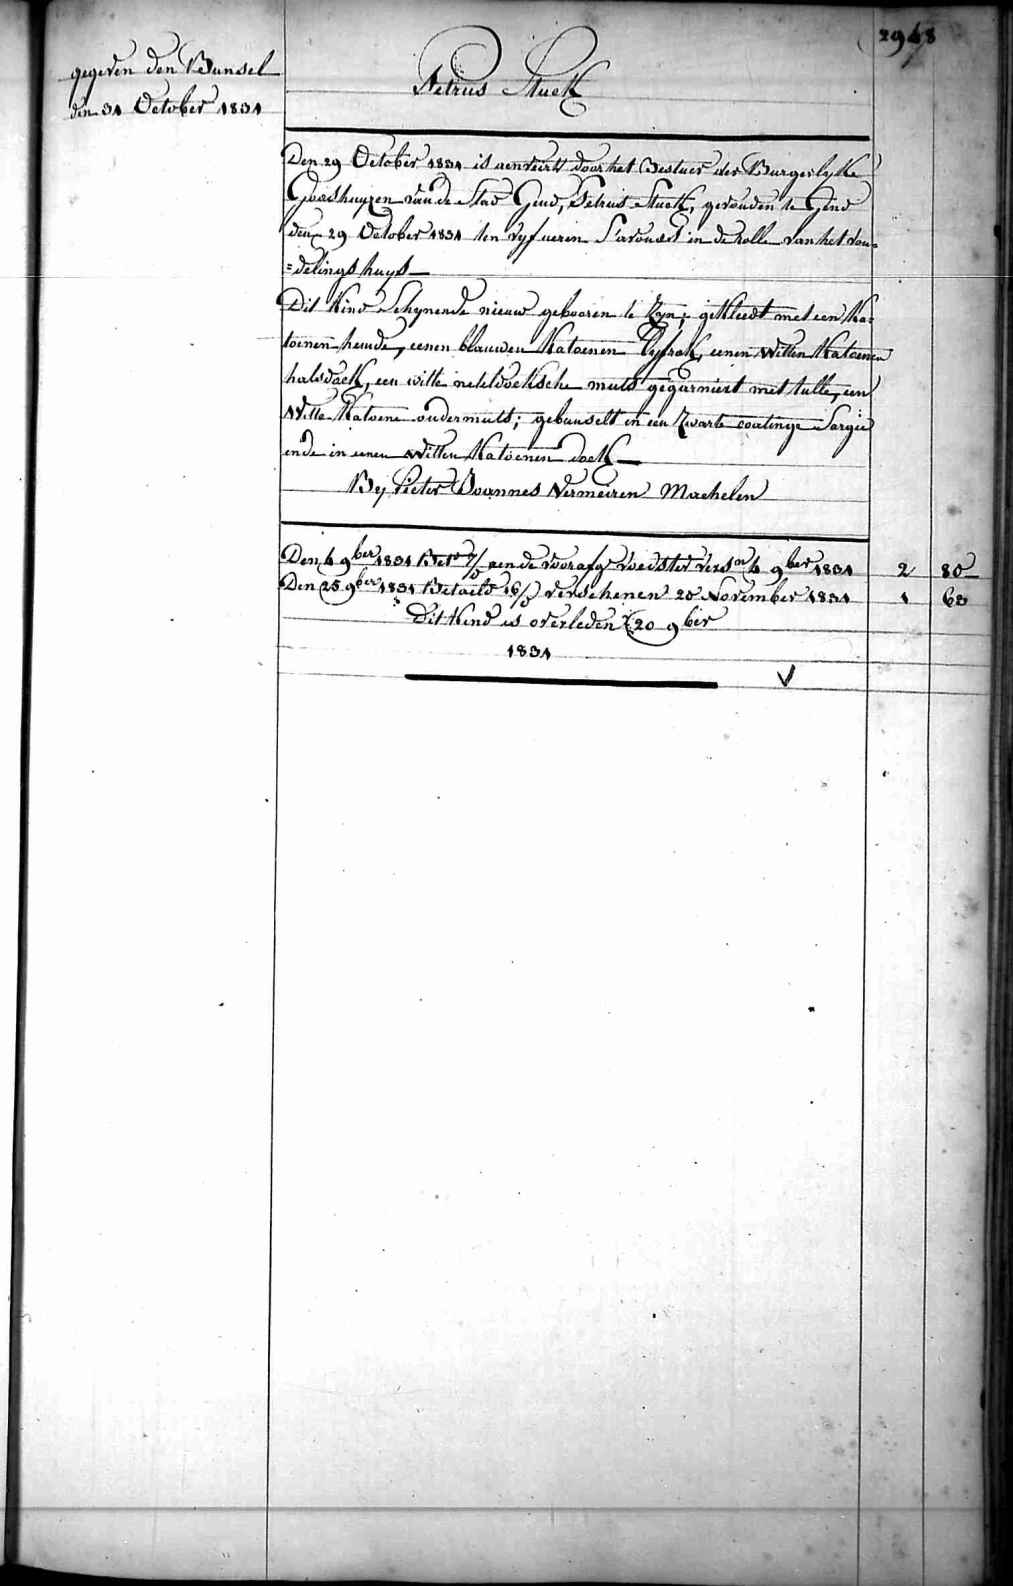 2948
gegeven den Bunsel
den 31 October 1831
Petrus Stuck
Den 29 October 1831 is aenveirt door het Bestuer der Burgerlyke
Godshuyzen van de Stad Gend, Petrus Stuck, gevonden te Gend
den 29 October 1831 ten vyf ueren S'avonds in de rolle van het von=
=delingshuys
Dit Kind Schynende nieuw gebooren te Zyn; gekleedt met een Ka=
toenen hemde, eenen blauwen Katoenen lyfrok, eenen witten Katoenen
halsdoek, een witte neteldoeksche muts gegarniert met tulle, een
Witte Katoene ondermuts; gebunselt in een Zwarte coatinge Sargie
ende in eenen witten Katoenen doek
By Pieter Joannes Vermeiren Machelen
Den 4 9ber 1831 Bet. aen de voorafg voedster versn 4 9ber 1831 2 80
Den 25 9ber 1831 Betaeld 16/ verschenen 20 November 1831 1 63
Dit Kind is overleden 20 9ber
1831